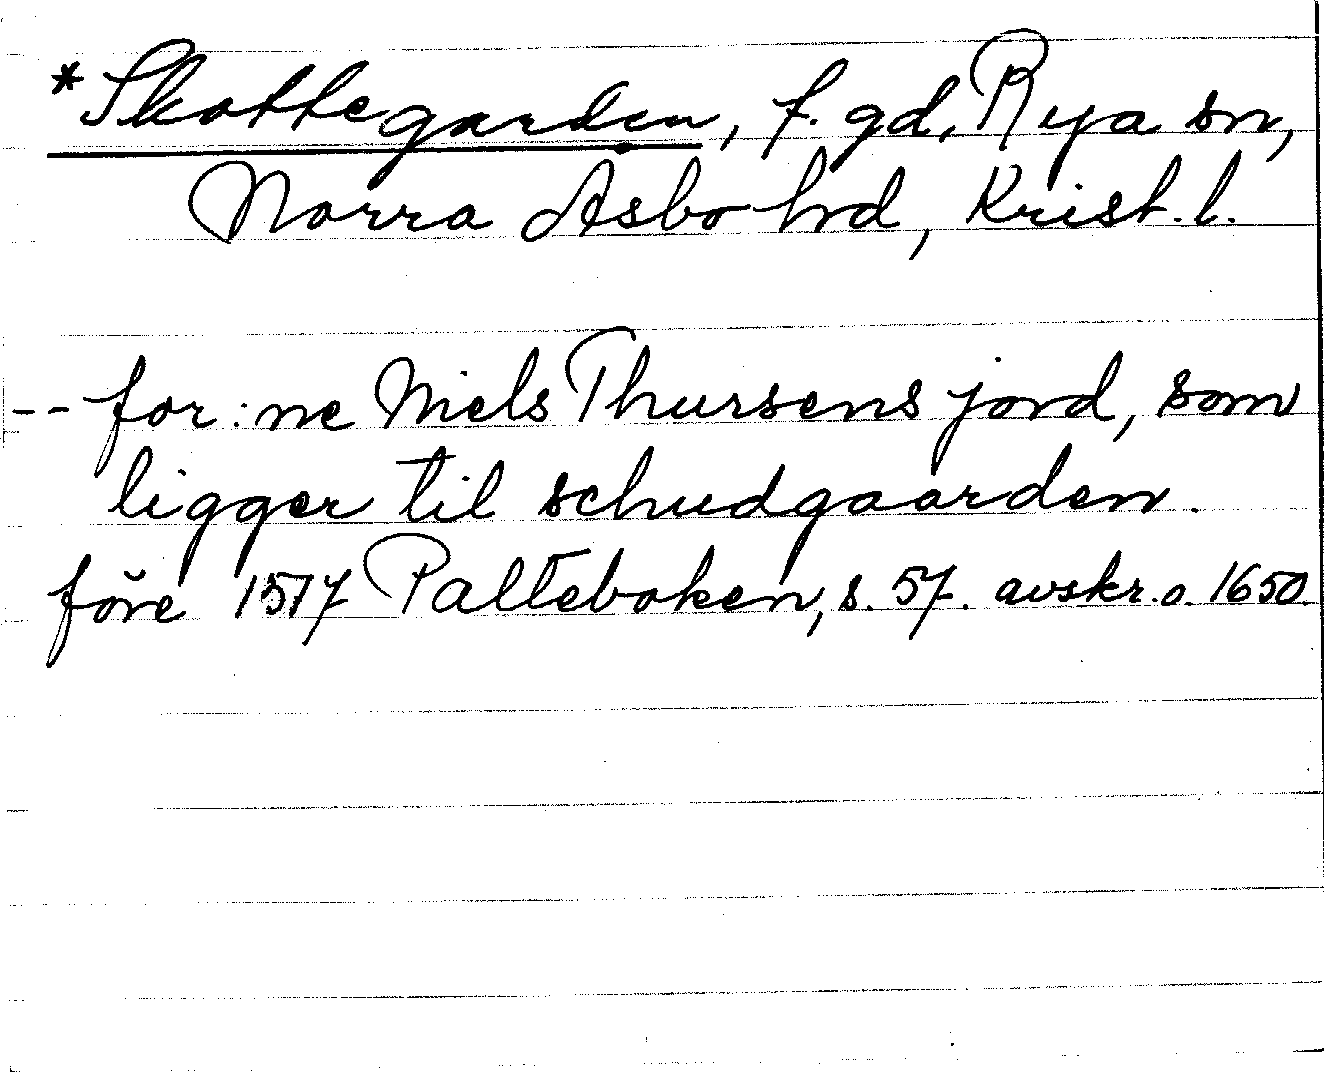 *Skottegarden, f. gd, Rya sn,
Norra Åsbo hrd, Krist. l.
-- for:ne Niels Thursens jord, som
ligger til schudgaarden.
före 1517 Palteboken, s. 57. avskr. o. 1650.